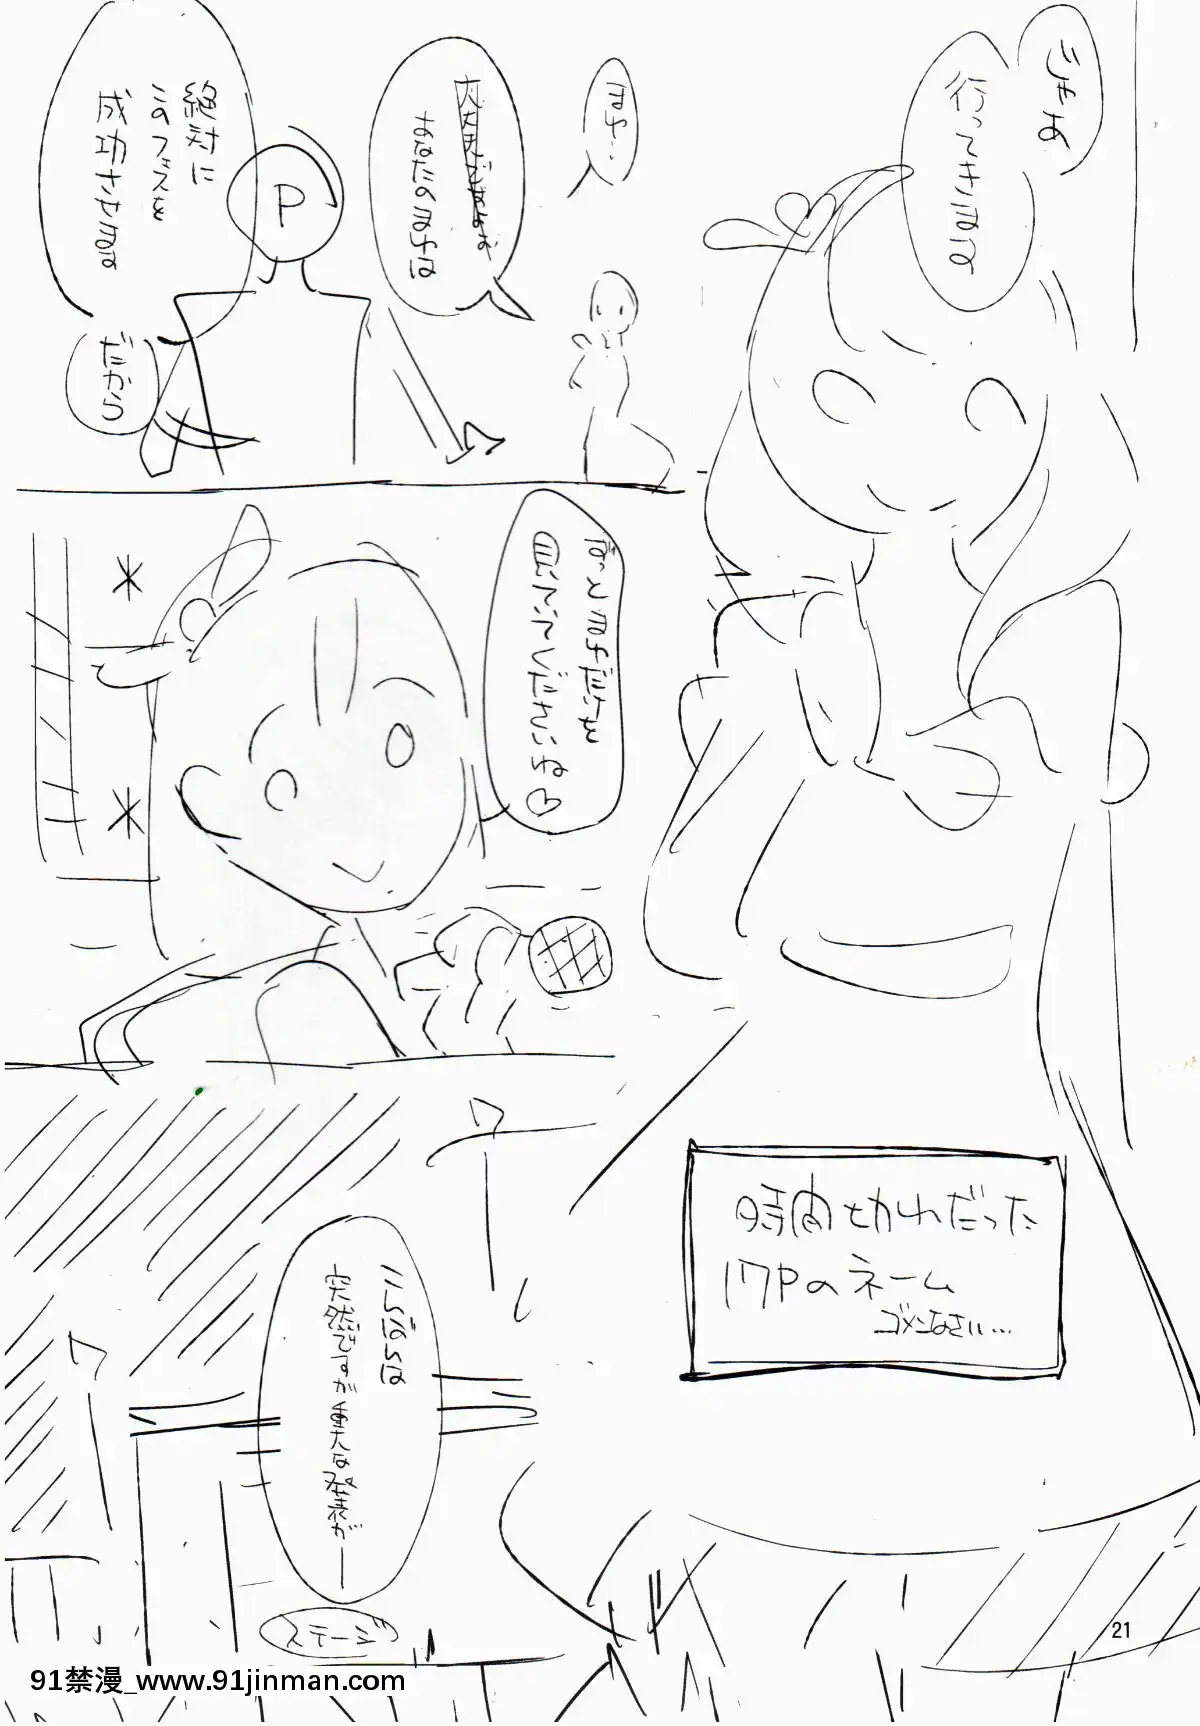 じゃあ
行ってきます
まゆ…
大丈夫ですよぉ
あなたのまゆは
絶対に
このフェスを
成功させます
だから
ずっとまゆだけを
見ていてくださいね♡
ワ
ワ
こんばんは
突然ですが重大な発表がー
ステージ
時間切れだった
17Pのネーム
ゴメンなさい…
P
21
91禁漫_www.91jinman.com